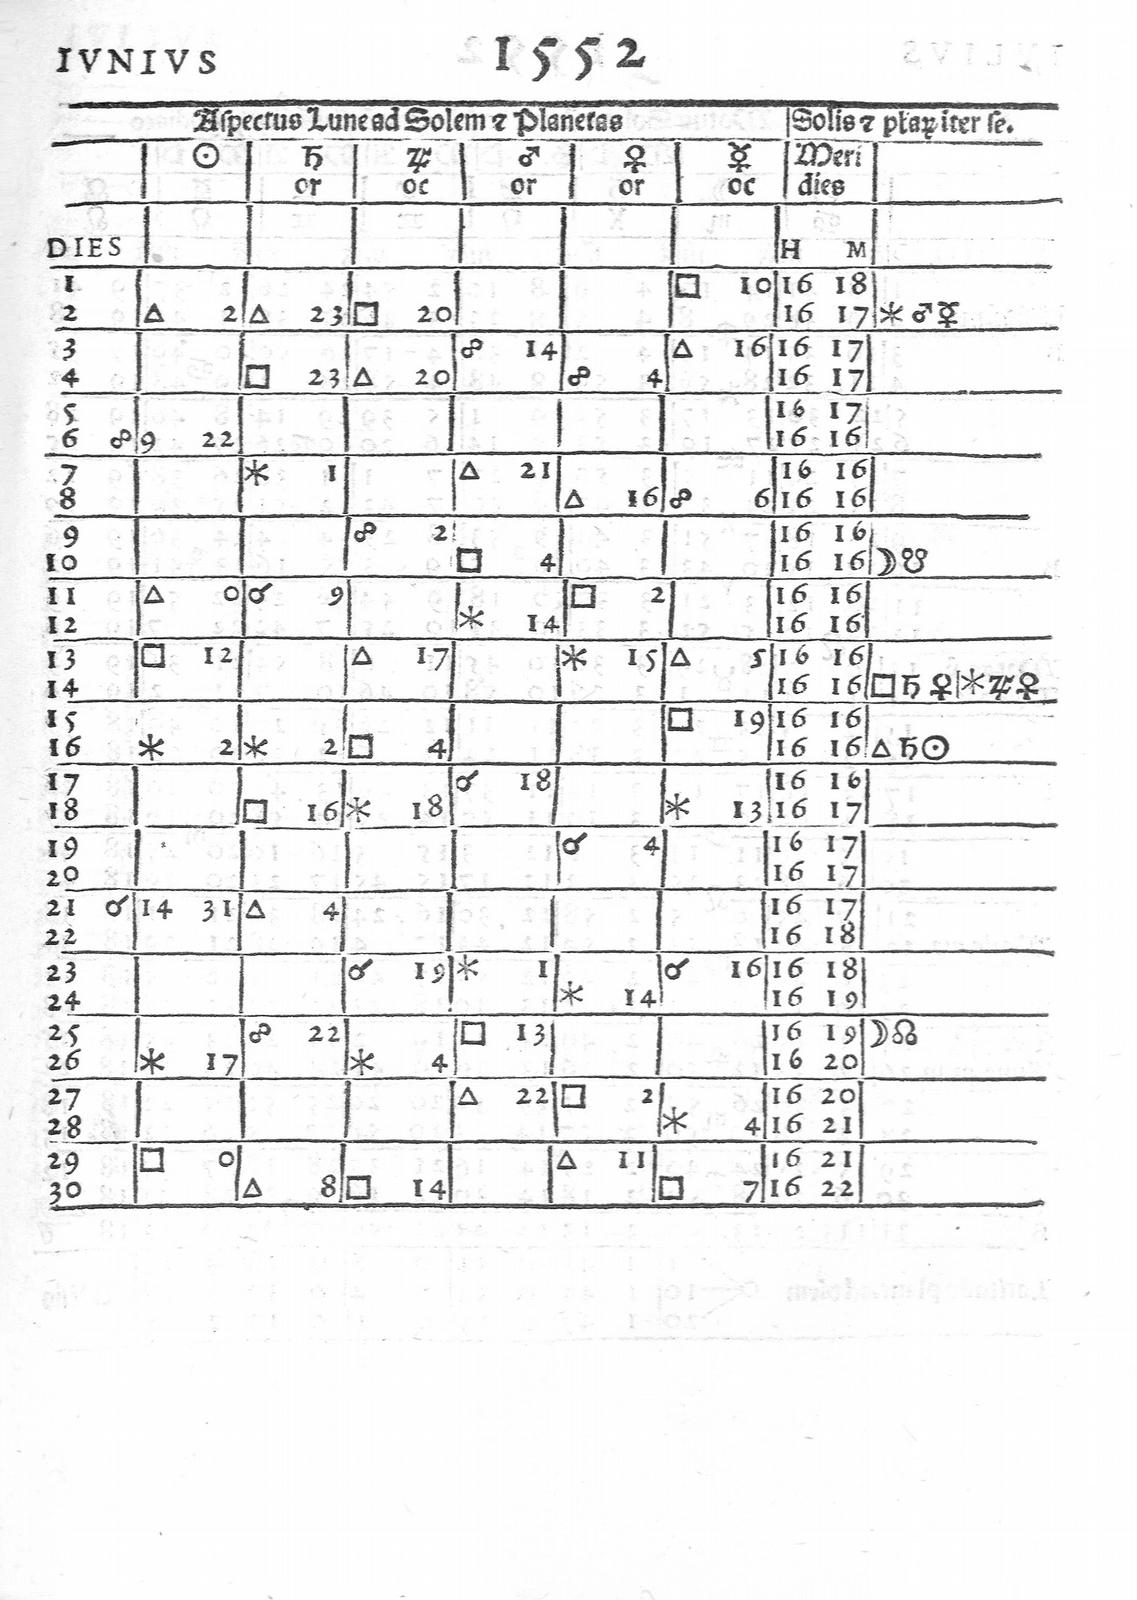 IVNIVS 1552
Aſpectus Lune ad Solem ⁊ Planetas Solis ⁊ ptaꝝ iter ſe.
☉ ♄ ♃ ♂ ♀ ☿ Meri
or oc or or oc dies
DIES H M
1 □ 10 16 18
2 △ 2 △ 23 □ 20 16 17 ⚹ ♂ ☿
3 ☍ 14 △ 16 16 17
4 □ 23 △ 20 ☍ 4 16 17
5 16 17
6 ☍ 9 22 16 16
7 ⚹ 1 △ 21 16 16
8 △ 16 ☍ 6 16 16
9 ☍ 2 16 16
10 □ 4 16 16 ☽ ☋
11 △ 0 ☌ 9 □ 2 16 16
12 ⚹ 14 16 16
13 □ 12 △ 17 ⚹ 15 △ 5 16 16
14 16 16 □ ♄ ♀ | ⚹ ♃ ♀
15 □ 19 16 16
16 ⚹ 2 ⚹ 2 □ 4 16 16 △ ♄ ☉
17 ☌ 18 16 16
18 □ 16 ⚹ 18 ⚹ 13 16 17
19 ☌ 4 16 17
20 16 17
21 ☌ 14 31 △ 4 16 17
22 16 18
23 ☌ 19 ⚹ 1 ☌ 16 16 18
24 ⚹ 14 16 19
25 ☍ 22 □ 13 16 19 ☽ ☊
26 ⚹ 17 ⚹ 4 16 20
27 △ 22 □ 2 16 20
28 ⚹ 4 16 21
29 □ 0 △ 11 16 21
30 △ 8 □ 14 □ 7 16 22